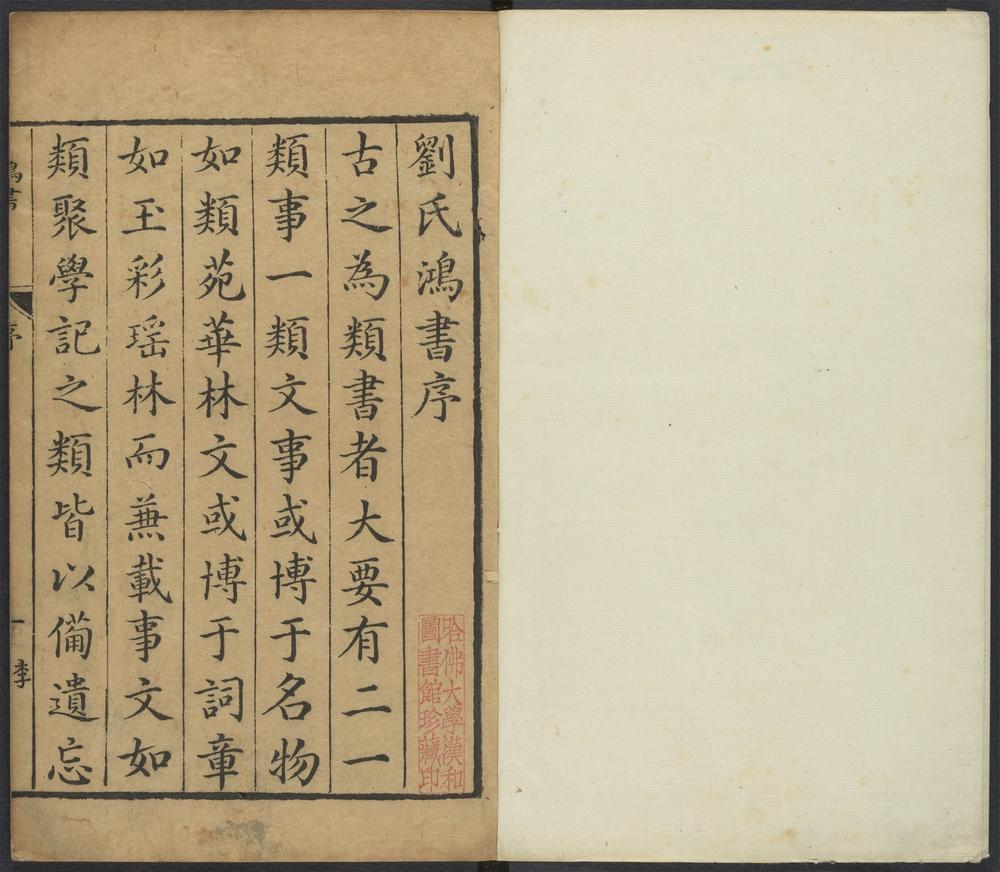 劉氏鴻書序
古之為類書者大要有二一
類事一類文事或博于名物
如類苑華林文或博于詞章
如玉彩瑶林而蕪載事文如
類聚學記之類皆以備遺忘
鴻書
序
一
李
哈佛大學漢和
圖書館珍藏印